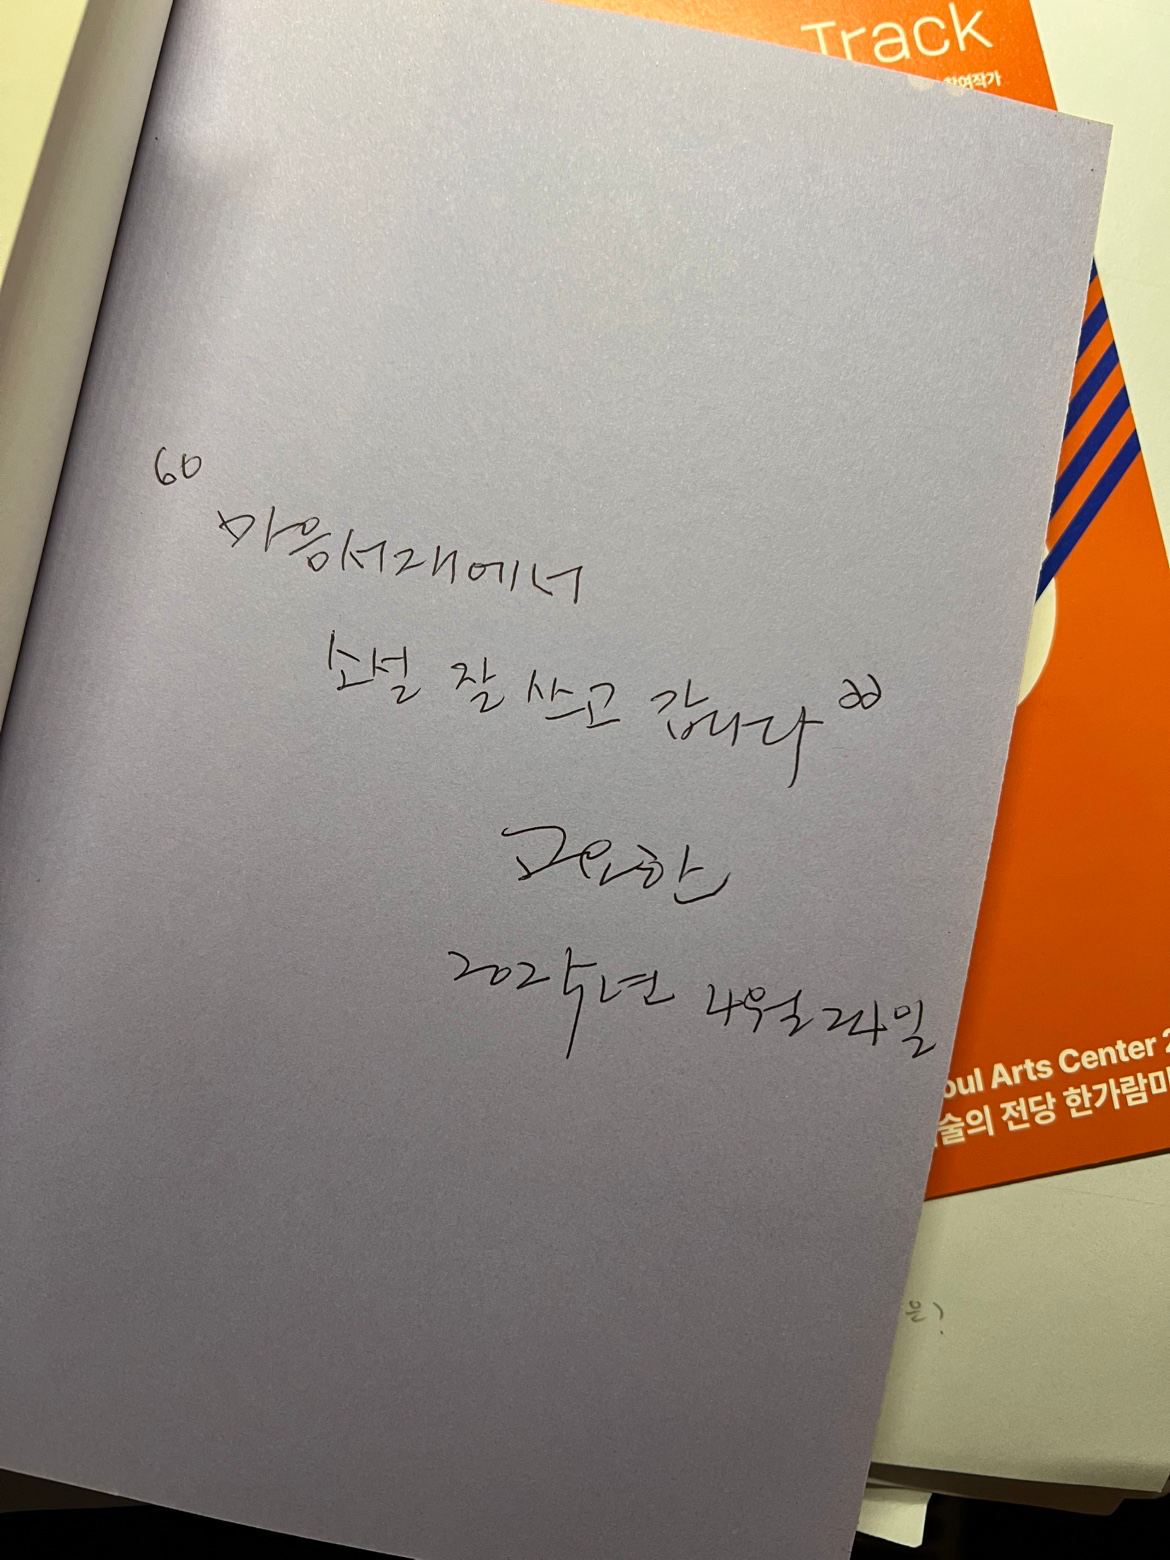 Track
참여작가
“마음서재에서
소설 잘 쓰고 갑니다”
고요한
2025년 4월 24일
oul Arts Center 2
술의 전당 한가람미
을?